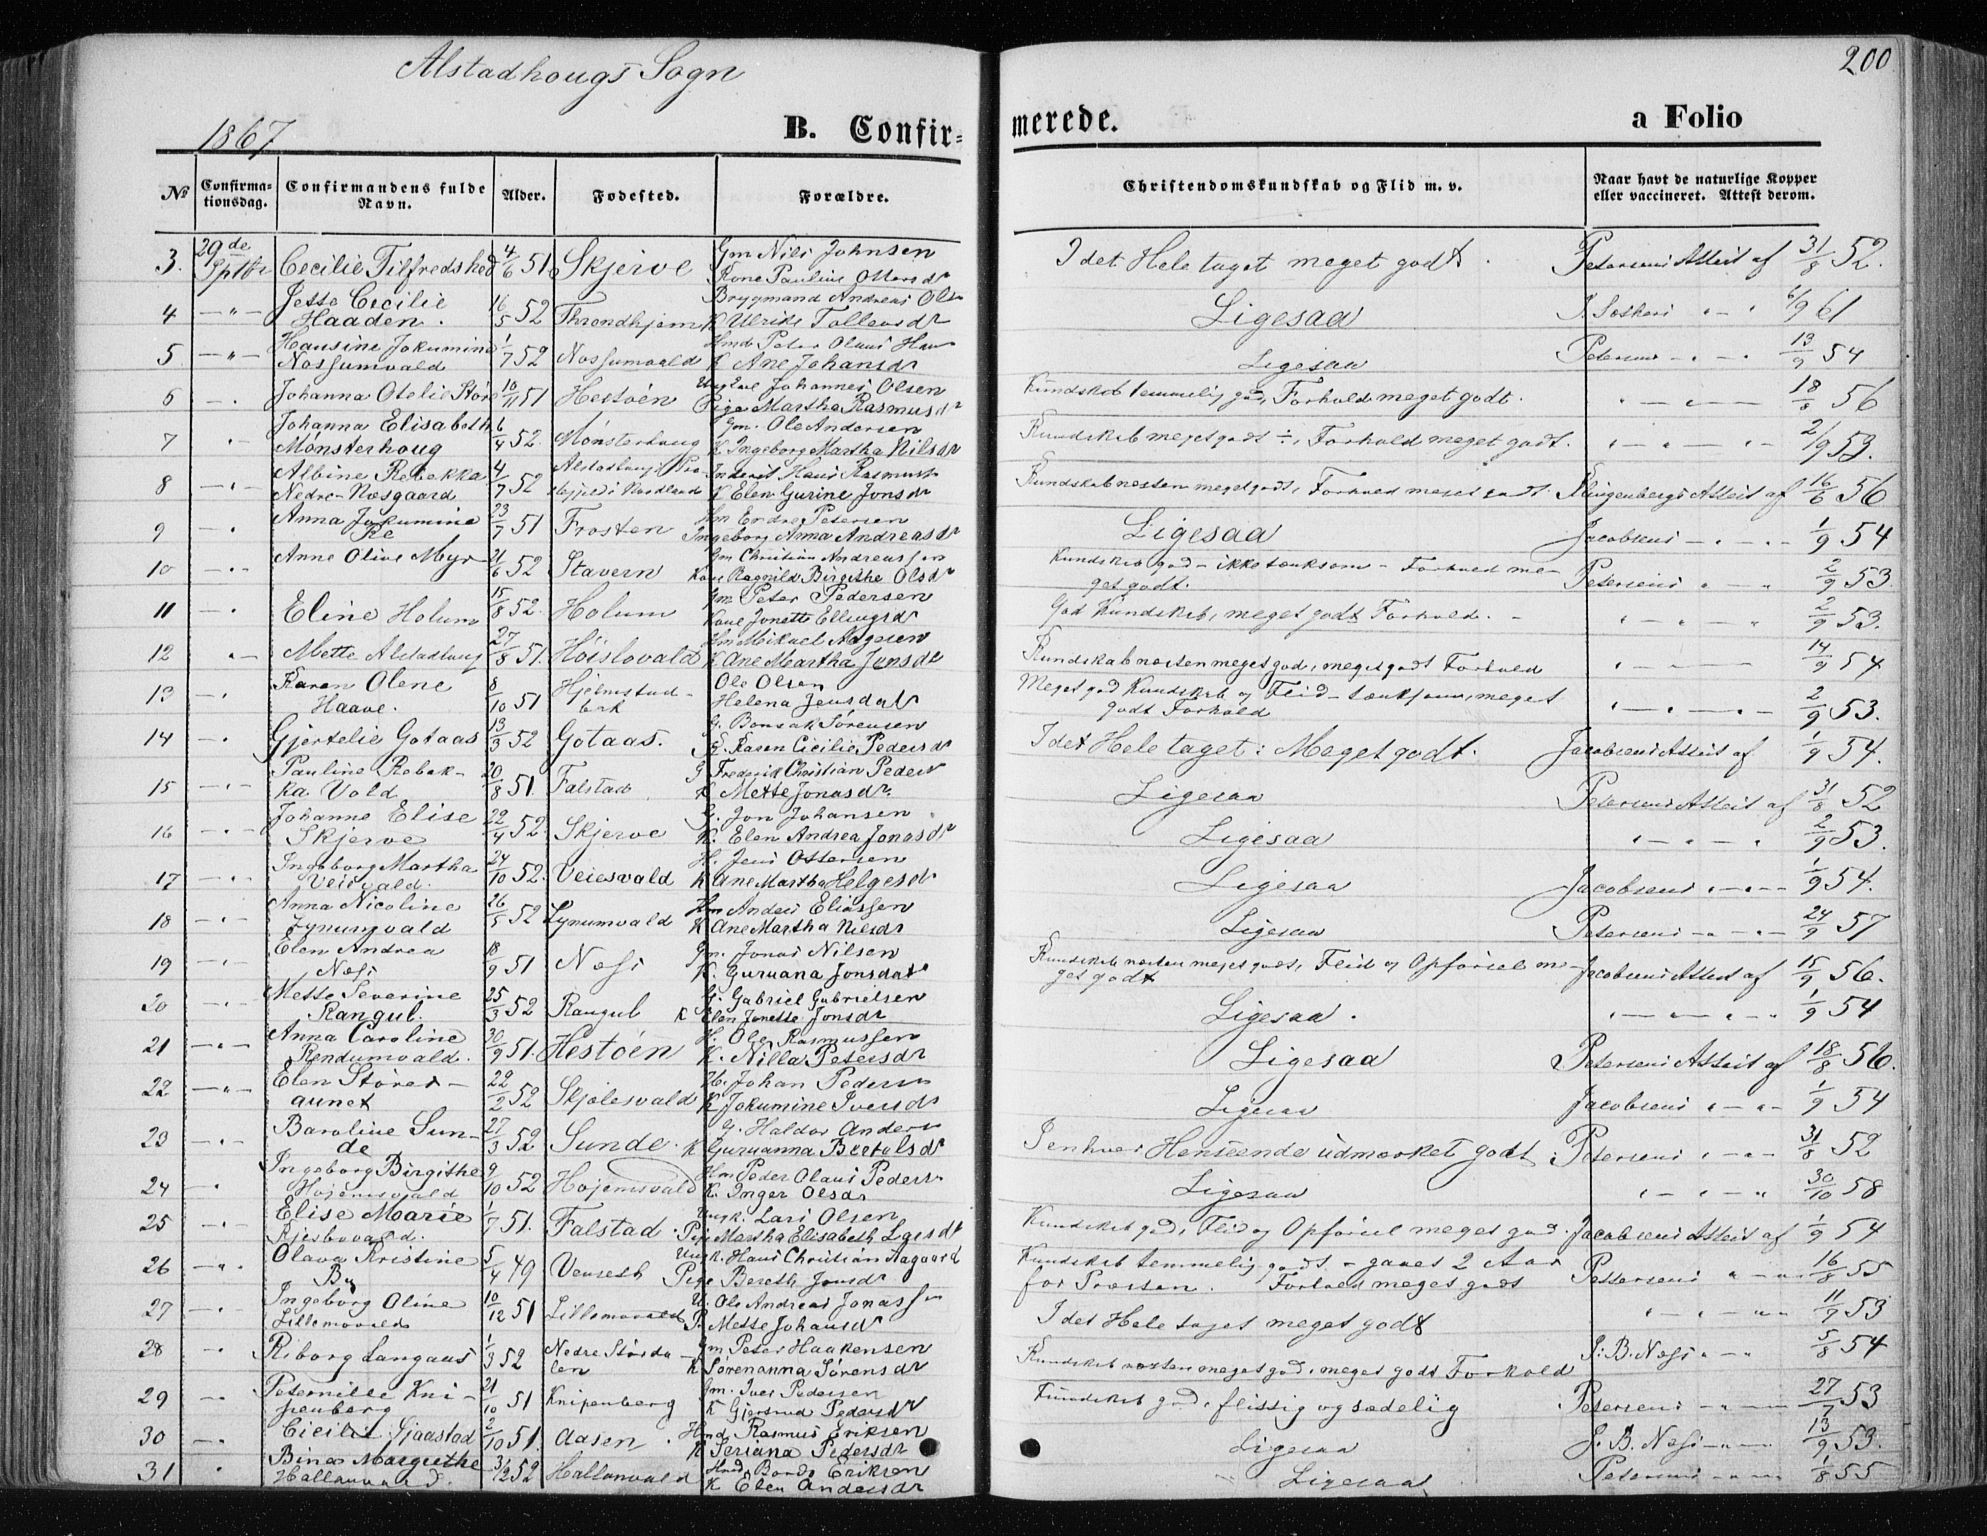 Alstadhougs Sogn
200
1867
B. Confir-
merede.
a Folio
No
Confirma-
tionsdag.
Confirmandens fulde
Navn.
Alder.
Fødested.
Forældre.
Christendomskundskab og Flid m. v.
Naar havt de naturlige Kopper
eller vaccineret. Attest derom.
3. 29de Cecilie Tilfredshed 4/6 51 Skjerve Gm Nils Johnsen
Kone Pauline Ottersdr
I det Hele taget meget godt. Petersens Attest af 31/8 52.
4 - " - Jette Cecilie Haaden. 16/5 52 Throndhjem Brygmand Andreas Olsn
K Ulrike Tollevsdr
Ligesaa 6/9 61
5 - " - Hansine Jokumine Nossumvald 1/7 52 Nossumvald Hmd Peter Olaus Han
K Ane Johansdr
Ligesaa Petersens - " - 13/9 54
6 - Johanna Otelie Støre 10/11 51 Hestöen Ungkl Johannes Olsen
Pige Martha Rasmusdr
Kundskab temmelig god, Forhold meget godt. " - " - 18/8 56
7 " Johanna Elisabeth Mønsterhoug 6/4 52. Mønsterhaug Gm. Ole Andersen
K Ingeborg Martha Nilsdr
Kundskab meget godt ÷, Forhold meget godt. " - " - " 2/9 53.
8 - " - Albine Rebekka Nedre-Næsgaard 4/7 52 Alstadhoug Præstegjeld i Nordland Inderst Hans Rasmusn
K Elen Gurine Jonsdr
Kundskab næsten meget godt, Forhold meget godt. Klingenbergs Attest af 16/6 56
9 - " Anna Jokumine Re 23/7 51 Frosten Hm Endre Petersen
Ingeborg Anna Andreasdr
Ligesaa Jacobsens - " - " 1/9 54
10 - " - Anne Oline Myr 21/6 52 Stavern Gm Christian Andreassen
Kone Ragnild Birgithe Olsdr
Kundskab god - ikke tænksom - Forhold me-
get godt. Petersens " - " 2/9 53.
11 - " Eline Holum 15/8 52. Holum Gm Peter Pedersen
Kone Jonette Ellingsdr
God Kundskab, meget godt Forhold. - " - " - " 2/9 53.
12 " - Mette Alstadhoug 27/8 51. Höislovald Hm Mikael Aagesen
K Ane Martha Jonsdr
Kundskab næsten meget god, meget godt Forhold " - " - 14/9 54
13 - " Karen Olene Haave. 8/10 51 Hjelmstad- Ole Olsen
Helena Jensdatr
Meget god Kundskab og Flid - tænksom, meget
godt Forhold " - " - " - 2/9 53.
14 - " Gjertelie Gotaas 13/3 52 Gotaas. G. Bonsak Sørensen
K. Karen Cicilie Pedersdr
I det Hele taget: Meget godt. Jacobsens Attest af 1/9 54.
15 - " Pauline Rebek-
ka Vold 20/8 51. Falstad G Frederik Christian Peders
K Mette Jonasdr.
Ligesaa Petersens Attest af 31/8 52
16 - " - Johanne Elise Skjerve 22/4 52. Skjerve G. Jon Johansen
K. Elen Andrea Jonasdr
Ligesaa " - " - " 2/9 53.
17 - " - Ingeborg Martha Veisvald. 24/10 52. Veiesvald H. Jens Ottersen
K Ane Martha Helgesdr
Ligesaa Jacobsens " - " - 1/9 54.
18 - " - Anna Nicoline Lynumvald 26/5 52 Lynumvald Hm Anders Eliassen
K Ane Martha Nilsdr
Ligesaa Petersens - " - " - 24/9 57
19 - " - Elen Andrea Næss 18/9 51 Næss Gm. Jonas Nilsen
K. Guruana Jonsdatr
Kundskab næsten meget godt, Flid og Opførsel me-
get godt Jacobsens Attest af 15/9 56.
20 - " - Mette Severine Rangul. 25/3 52 Rangul G. Gabriel Gabrielsen
K Elen Jonette Jonsdr
Ligesaa. " - " - " - " 1/9 54
21 - " - Anna Caroline Rendumvald. 30/9 51. Hestöen H. Ole Rasmussen
K. Nilla Petersdr
Ligesaa Petersens Attest af 18/8 56.
22 - " - Elen Störes-
aunet 22/2 52 Skjolesvald H. Johan Pedersn
K Jokumine Iversdr
Ligesaa Jacobsens " - " - 1/9 54
23 - " - Baroline Sun-
de 27/3 52 Sunde. G. Haldor Anders
K Guruanna Bertelsdr
I enhver Henseende udmærket godt. Petersens " - " - 31/8 52
24 - " Ingeborg Birgithe Hojemsvald 9/10 52 Hojemsvald Hm Peder Olaus Pedersn
K. Inger Olsdr
Ligesaa " - " - " 30/10 58
25 - " Elise Marie 1/7 51. Falstad. Ungk. Lars Olsen
Pige Martha Elisabeth
Kundskab god, Flid og Opførsel meget god. Jacobsens Attest af 1/9 54
26 - " - Olava Kristine By 5/4 49 Venseth Ungk. Hans Christian Aagaard
Pige Bereth Jonsdr
Kundskab temmelig godt - gaaet 2 Aar
for Præsten. Forhold meget godt Pettersens " - " 16/8 55
27 - " - Ingeborg Oline Lillemovald 10/12 51 Lillemovald U. Ole Andreas Jonassn
P. Mette Johansdr
I det Hele taget meget godt " - " - " 11/9 53
28 " Riborg Langaas 1/3 52 Nedre Størda-
len Gm Peter Haakensen
K Sørenanna Sørensdr
Kundskab næsten meget god, meget godt Forhold J. B. Næss - " - 5/8 54
29 - " - Peternille Kni-
penberg 21/10 51 Knipenberg Gm. Iver Pedersen
K Gjertrud Pedersdr
Kundskab god, flissig og sædelig Petersens - " - 27/7 53
30 - " Cicilie Gjaastad 2/10 51. Aasen. Hmd Rasmus Eriksen
K Seriana Pedersdr
Ligesaa J. B. Næss - " - 13/9 53.
31 " Bine Margrethe Hallanvald. 31/12 52 Hallanvald Hmd Bardo Eriksen
K Elen Andersdr
Ligesaa Petersens - " - 1/8 55